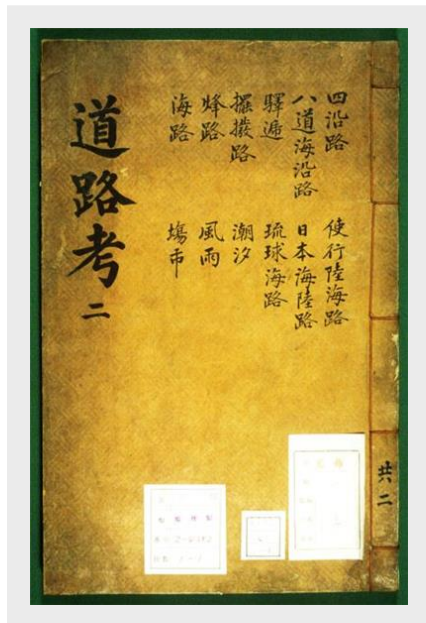 四沿路
八道海沿路
驛遞
擺撥路
烽路
海路
使行陸海路
日本海陸路
琉球海路
潮汐
風雨
塲市
道路考 二
共二